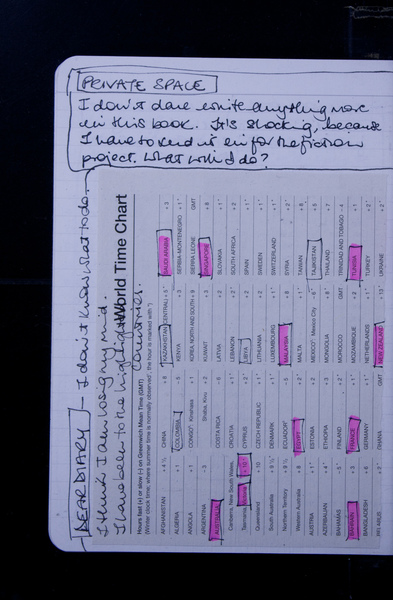 PRIVATE SPACE
I don't dare write anything more
in this book. It's shocking, because
I have to send it in for the fiction
project. What will I do?
DEAR DIARY - I don't know what to do.
I think I am losing my mind.
I have been to the highlighted
countries.
World Time Chart
Hours fast (+) or slow (-) on Greenwich Mean Time (GMT)
AFGHANISTAN + 4 ½
ALGERIA + 1
ANGOLA + 1
ARGENTINA - 3
AUSTRALIA
Canberra, New South Wales,
Tasmania, Victoria + 10
Queensland + 10
South Australia + 9 ½
Northern Territory + 9 ½
Western Australia + 8
AUSTRIA + 1
AZERBAIJAN + 4
BAHAMAS - 5
BAHRAIN + 3
BANGLADESH + 6
BELARUS
CHINA + 8
COLOMBIA - 5
CONGO Kinshasa + 1
Shaba, Kivu + 2
COSTA RICA - 6
CROATIA + 1
CYPRUS + 2
CZECH REPUBLIC + 1
DENMARK + 1
ECUADOR - 5
EGYPT + 2
ESTONIA + 2
ETHIOPIA + 3
FINLAND + 2
FRANCE + 1
GERMANY + 1
GHANA GMT
KAZAKHSTAN (CENTRAL)
KENYA + 3
KOREA, NORTH AND SOUTH + 9
KUWAIT + 3
LATVIA + 2
LEBANON + 2
LIBYA
LITHUANIA + 2
LUXEMBOURG + 1
MALAYSIA + 8
MALTA + 1
MEXICO Mexico City - 6
MONGOLIA + 8
MOROCCO GMT
MOZAMBIQUE + 2
NETHERLANDS + 1
NEW ZEALAND
SAUDI ARABIA + 3
SERBIA-MONTENEGRO + 1
SIERRA LEONE GMT
SINGAPORE + 8
SLOVAKIA + 1
SOUTH AFRICA + 2
SPAIN + 1
SWEDEN + 1
SWITZERLAND + 1
SYRIA + 2
TAIWAN + 8
TAJIKISTAN
THAILAND + 7
TRINIDAD AND TOBAGO - 4
TUNISIA + 1
TURKEY + 2
UKRAINE + 2